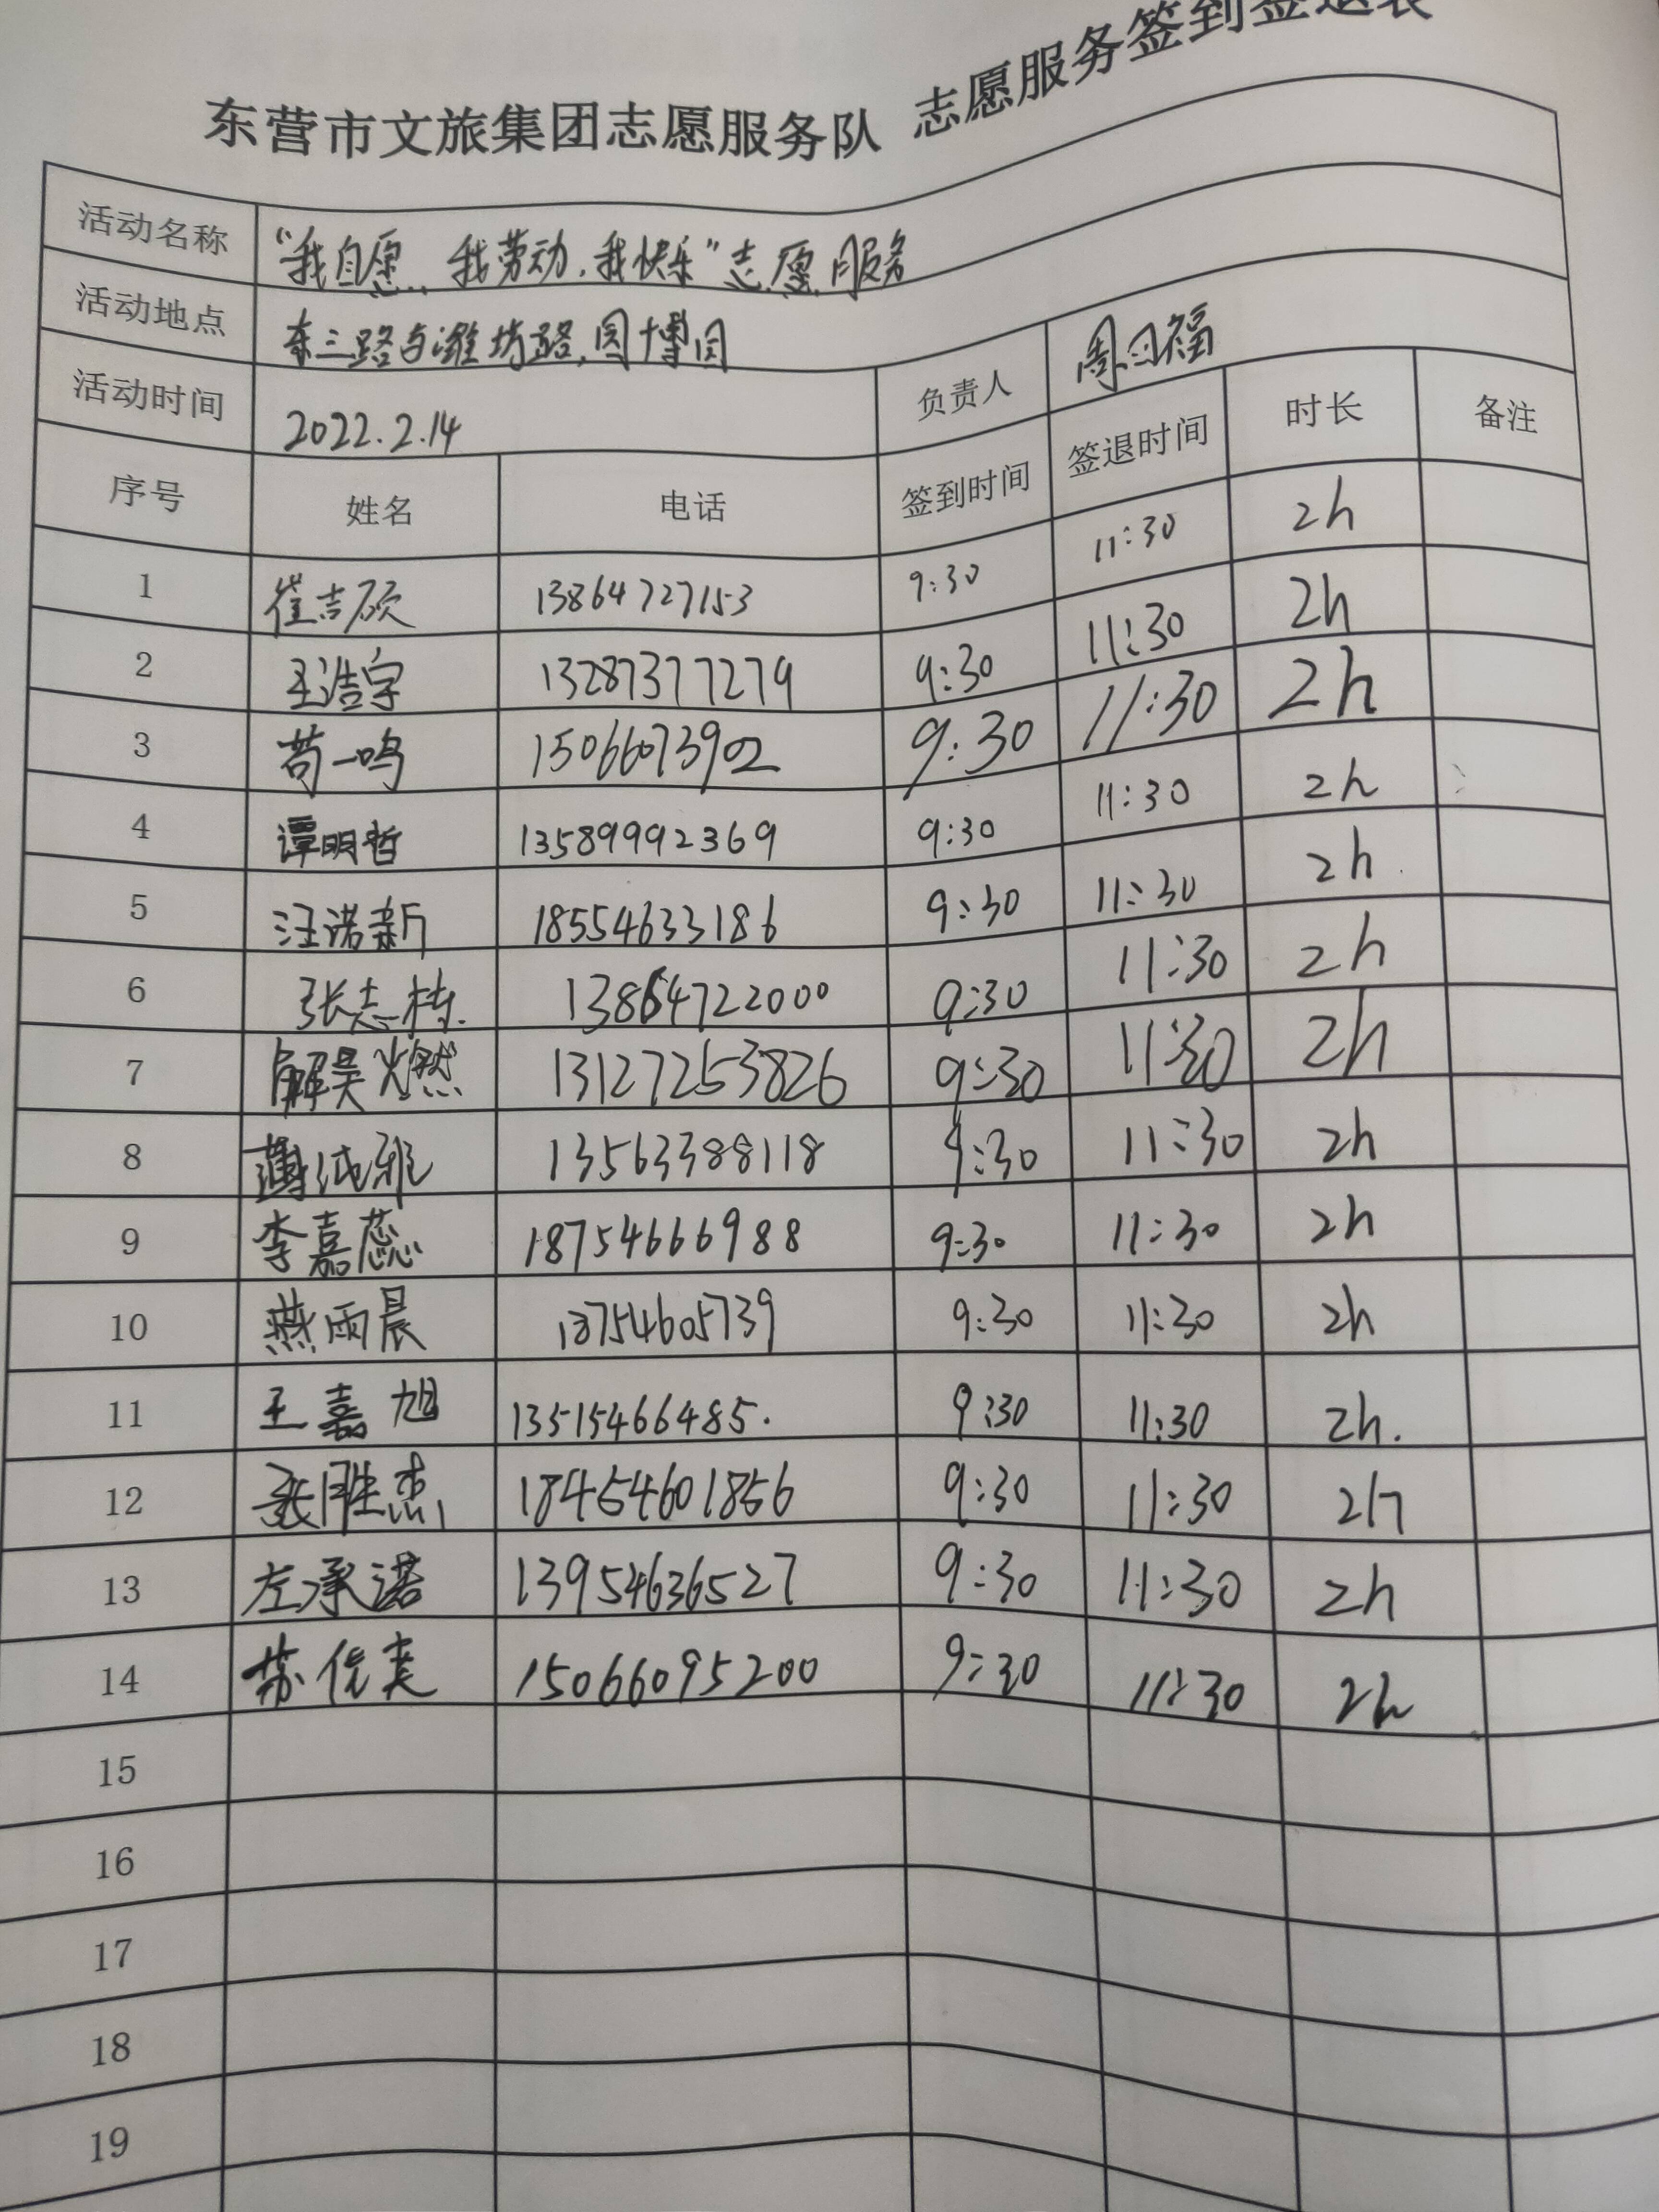 东营市文旅集团志愿服务队 志愿服务签到签退表
活动名称 “我自愿、我劳动、我快乐”志愿服务
活动地点 东三路与潍坊路,园博园
活动时间 2022.2.14 负责人
序号 姓名 电话 签到时间 签退时间 时长 备注
1 崔吉硕 13864727153 9:30 11:30 2h
2 王浩宇 13287377279 9:30 11:30 2h
3 苟一鸣 15066073902 9:30 11:30 2h
4 谭明哲 13589992369 9:30 11:30 2h
5 汪诺新 18554633186 9:30 11:30 2h
6 张志栋 13864722000 9:30 11:30 2h
7 解昊燃 13127253826 9:30 11:30 2h
8 薄纯雅 13563388118 9:30 11:30 2h
9 李嘉蕊 18754666988 9:30 11:30 2h
10 燕雨晨 18754605739 9:30 11:30 2h
11 王嘉旭 13515466485. 9:30 11:30 2h.
12 张胜杰 18454601856 9:30 11:30 2h
13 左承诺 13954636527 9:30 11:30 2h
14 15066095200 9:30 11:30 2h
15
16
17
18
19